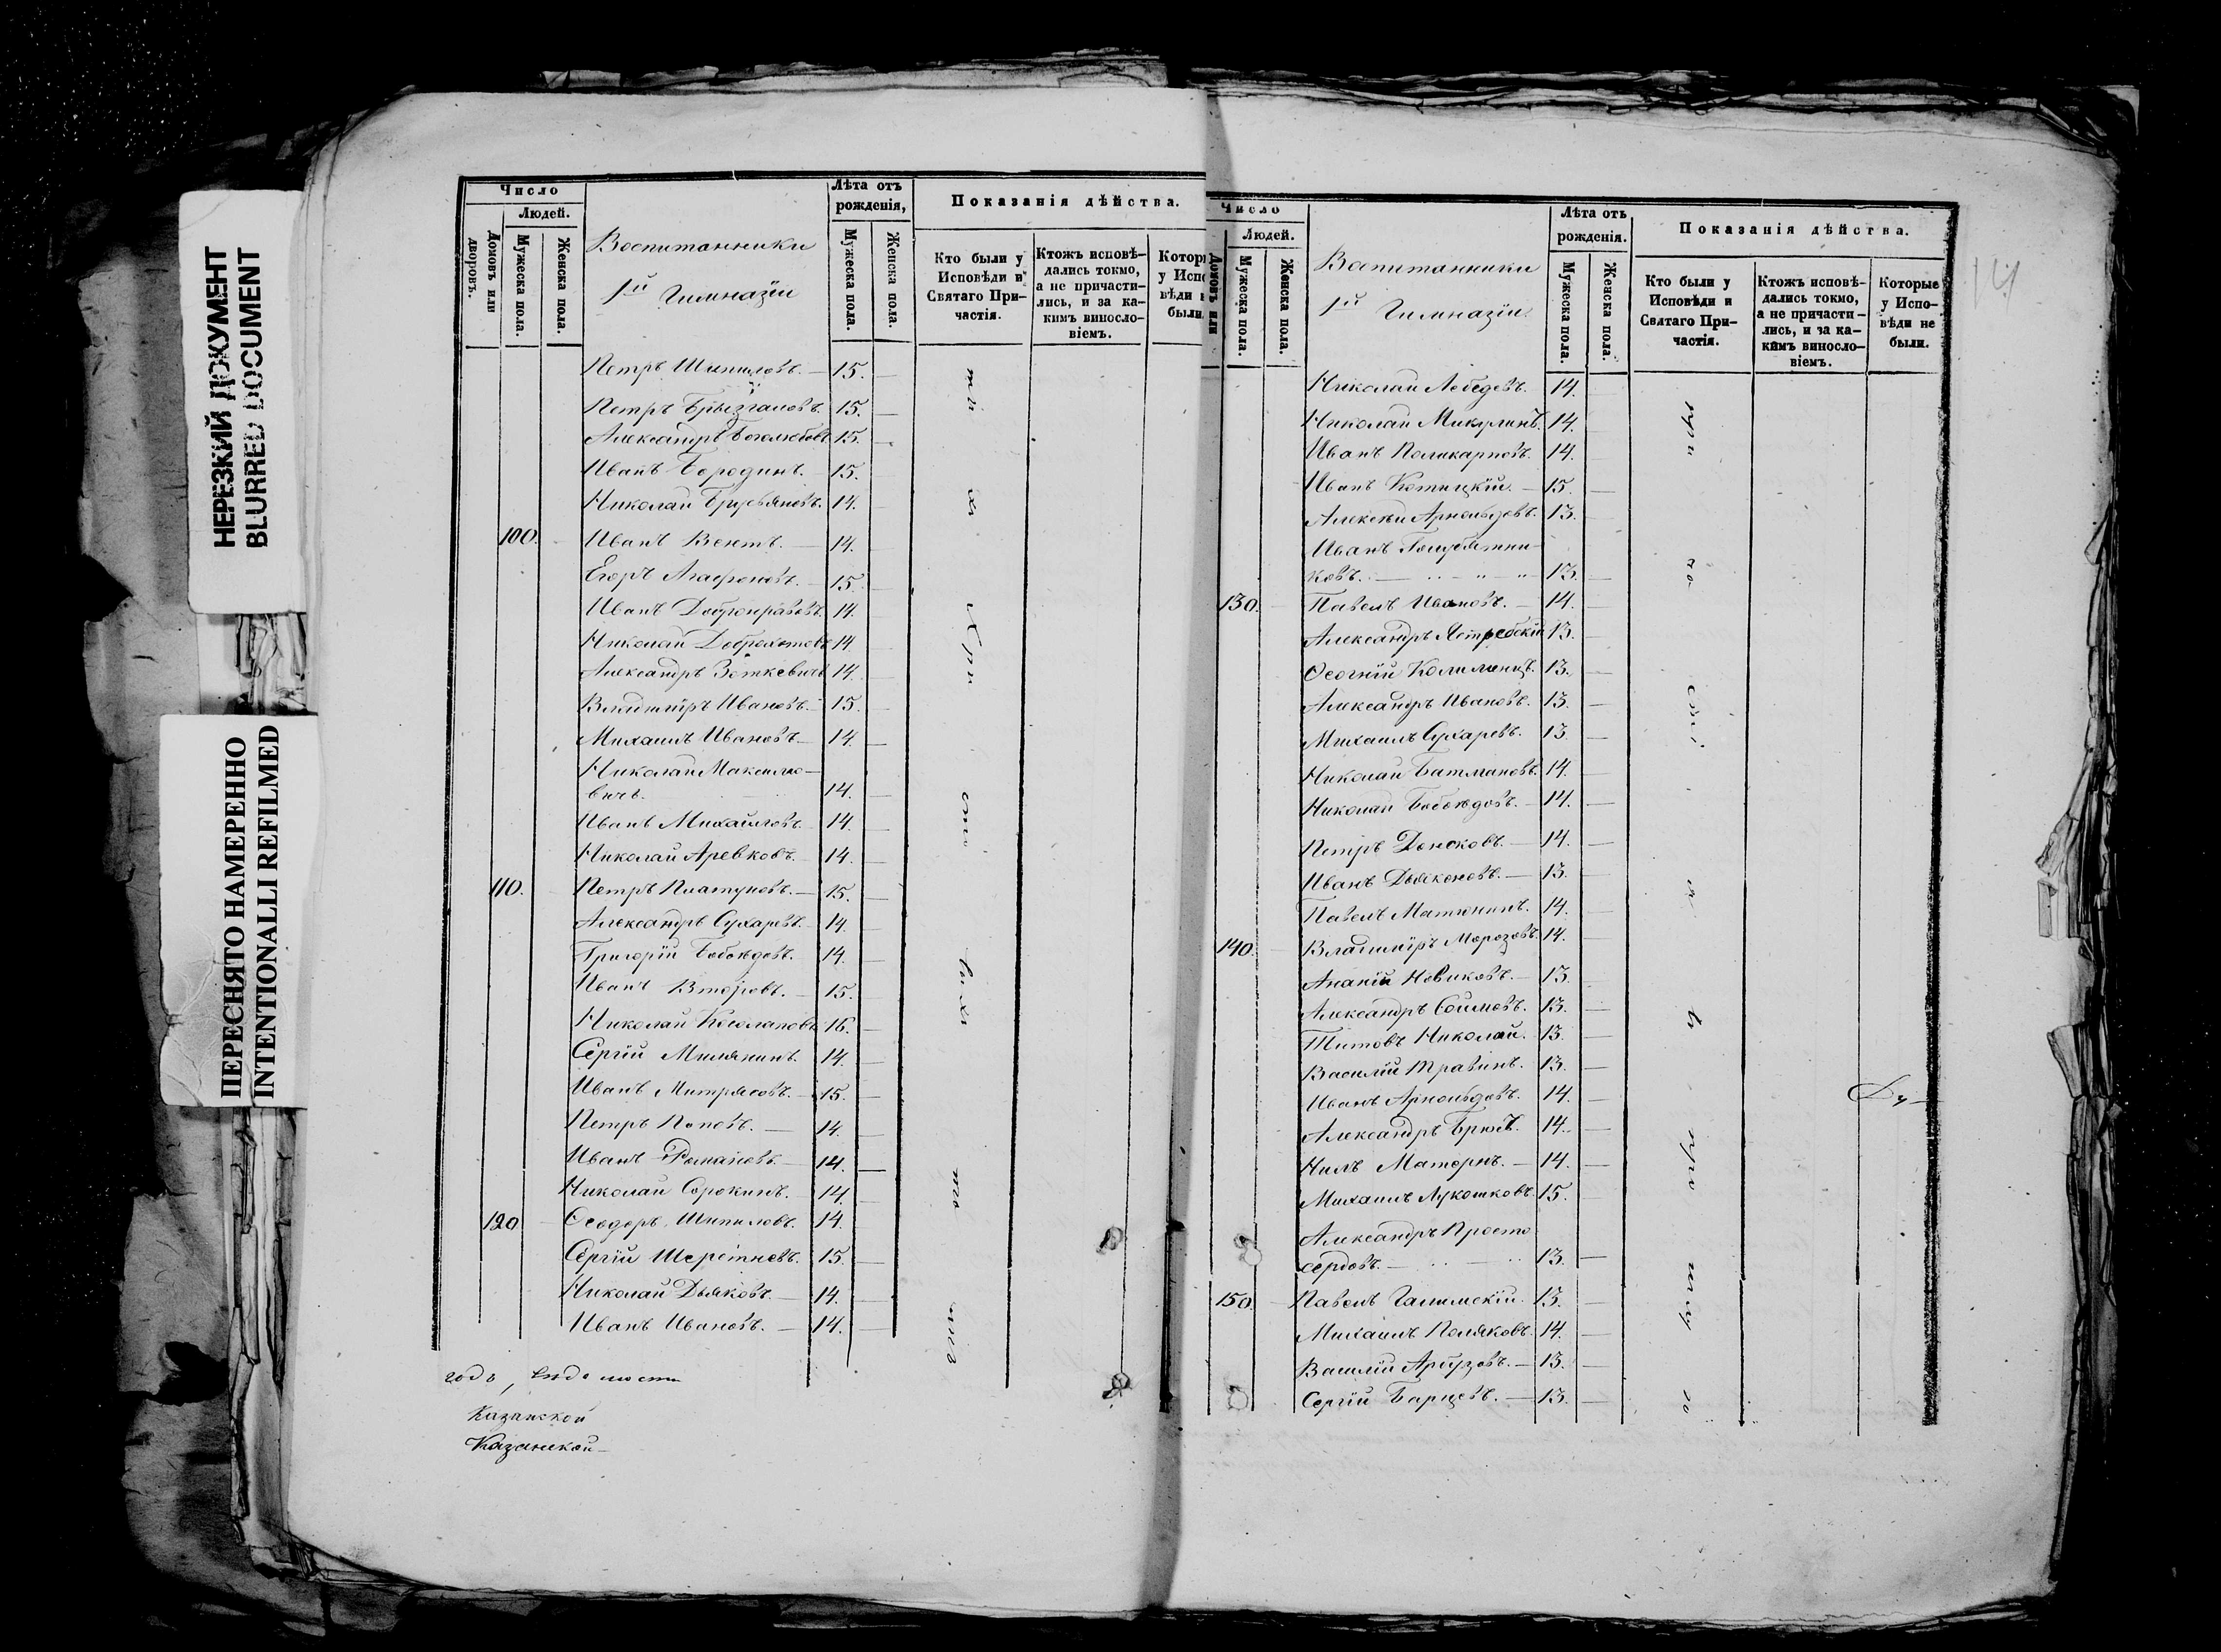 НЕРЕЗКИЙ ДОКУМЕНТ
BLURRED DOCUMENT
ПЕРЕСНЯТО НАМЕРЕННО
INTENTIONALLI REFILMED
Число
Людей.
Домовъ или дворовъ.
Мужеска пола.
Женска пола.
Воспитанники
1й Гимназіи
Лѣта отъ рожденія,
Мужеска пола.
Женска пола.
Показанія дѣйства.
Кто были у Исповѣди и Святаго Причастія.
Ктожъ исповѣдались токмо, а не причастились, и за какимъ винословіемъ.
Петръ Шипиловъ. — 15. —
Петръ Брызгаловъ. 15. —
Александръ Боголюбовъ 15. —
Иванъ Бородинъ. — 15. —
Николай Брусьяновъ. 14. —
100. Иванъ Вентъ. — 14. —
Егоръ Агафоновъ. — 15. —
Иванъ Добронравовъ. 14. —
Николай Доброхотовъ 14 —
Александръ Зоткевичъ 14. —
Владиміръ Ивановъ. — 15. —
Михаилъ Ивановъ — 14. —
Николай Максимо-
вичъ. 14. —
Иванъ Михайловъ. 14. —
Николай Аревковъ. — 14. —
110. Петръ Платуновъ. — 15. —
Александръ Сухаревъ. 14. —
Григорій Бобоѣдовъ. 14. —
Иванъ Второвъ. — 15. —
Николай Косолаповъ 16. —
Сергій Милянинъ. 14. —
Иванъ Митрясовъ. — 15. —
Петръ Поповъ. — 14. —
Иванъ Романовъ. — 14. —
Николай Сорокинъ. — 14. —
120 Ѳеодоръ Шипиловъ. 14.
Сергій Шереметевъ. 15. —
Николай Дьяковъ. — 14. —
Иванъ Ивановъ. — 14. —
годъ,
Казанской
Казанской
14
Число
Людей.
Домовъ или
Мужеска пола.
Женска пола.
Воспитанники
1й Гимназіи.
Лѣта отъ рожденія.
Мужеска пола.
Женска пола.
Показанія дѣйства.
Кто были у Исповѣди и Святаго Причастія.
Ктожъ исповѣдались токмо, а не причастились, и за какимъ винословіемъ.
Которые у Исповѣди не были.
Николай Лебедевъ. 14. —
Николай Микулинъ. 14. —
Иванъ Поликарповъ. 14. —
Иванъ Котицкій. — 15. —
Алексѣй Арнольдовъ. 13. —
Иванъ Голубятни-
ковъ. — 13. —
130. Павелъ Ивановъ. — 14. —
Александръ Ястребскій 13. —
13. —
Александръ Ивановъ. 13. —
Михаилъ Сухаревъ. 13. —
Николай Батмановъ. 14. —
Николай Бобоѣдовъ. — 14. —
Петръ Донсковъ. — 14. —
Иванъ Дьяконовъ. — 13. —
Павелъ Матюнинъ. 14. —
140. Владиміръ Морозовъ. 14. —
Ананій Новиковъ. — 13. —
Александръ Соимовъ. 13. —
Титовъ Николай. 13. —
Василій Травинъ. 13. —
Иванъ Арнольдовъ. 14. —
Александръ 14. —
Нилъ Матернъ. — 14. —
Михаилъ Лукошковъ. 15. —
Александръ Просто
сердовъ. — 13. —
150. Павелъ Галимскій. 13. —
Михаилъ Поляковъ. 14. —
Василій Арбузовъ. — 13. —
Сергій Барцевъ. — 13. —